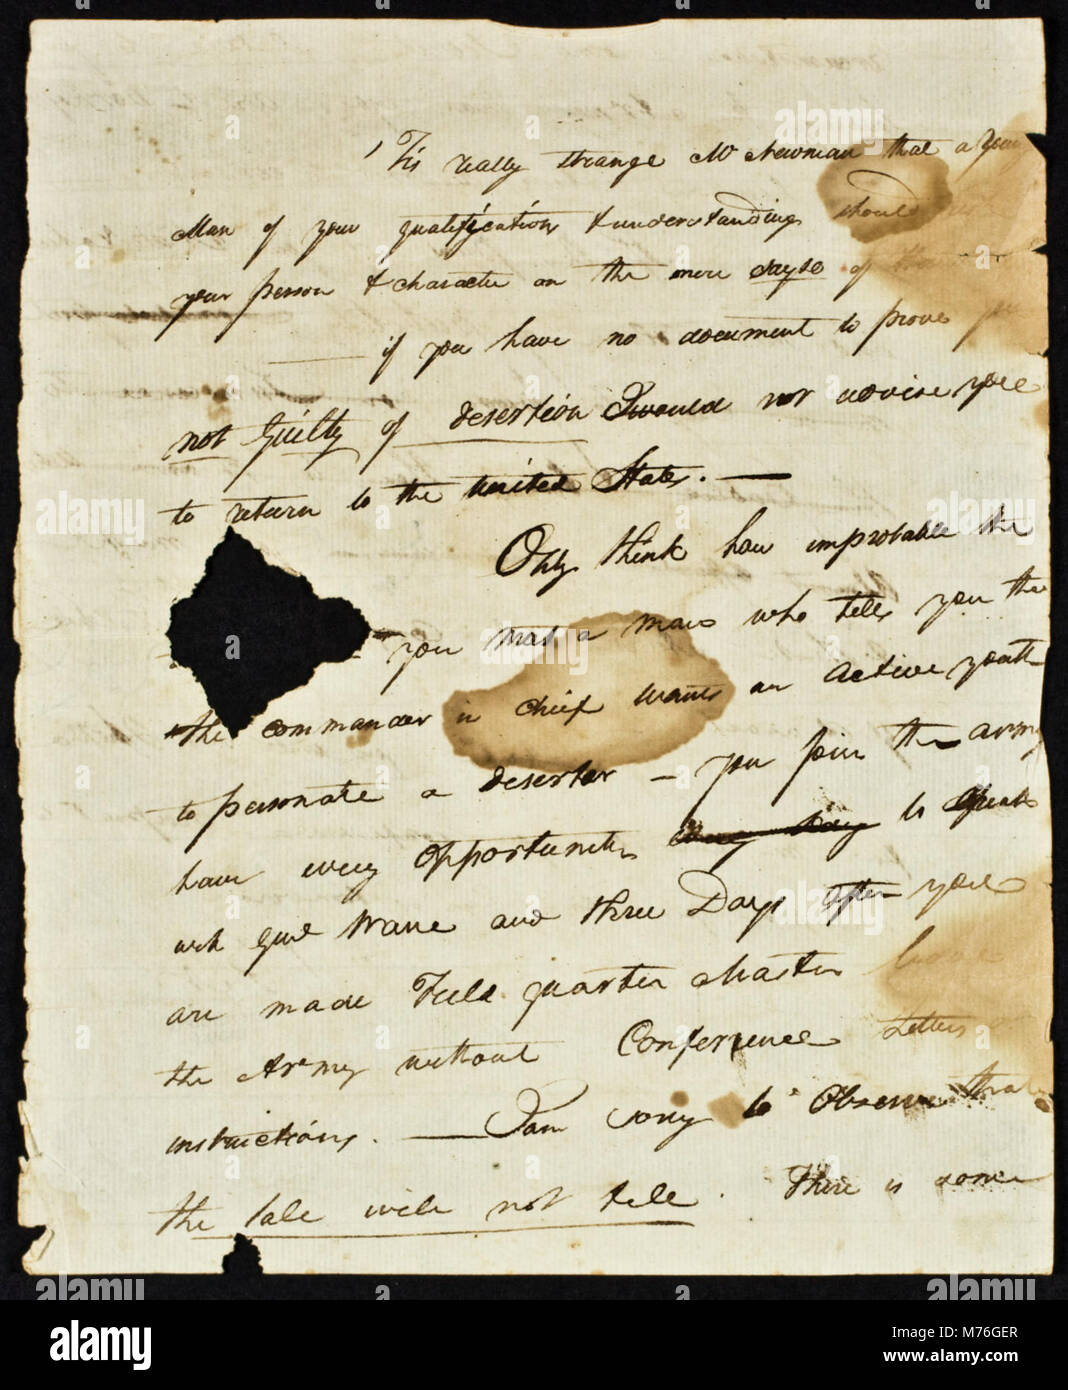 'Tis really strange Mr Newman that a young
Man of your qualification & understanding should
your person & character on the mere sayso of
if you have no document to prove you
not Guilty of desertion I would not advise you
to return to the United States. —
Only think how improbable the
you met a man who tells you the
the commander in chief wants an active youth
to personate a deserter — you join the army
have every opportunity every day to speak
with Genl Wane and three Days after you
are made Field quarter Master leave
the Army without Conference Letters
instructions. — I am sorry to Observe that
the tale will not tell. There is some
alamy
M76GER
www.alamy.com